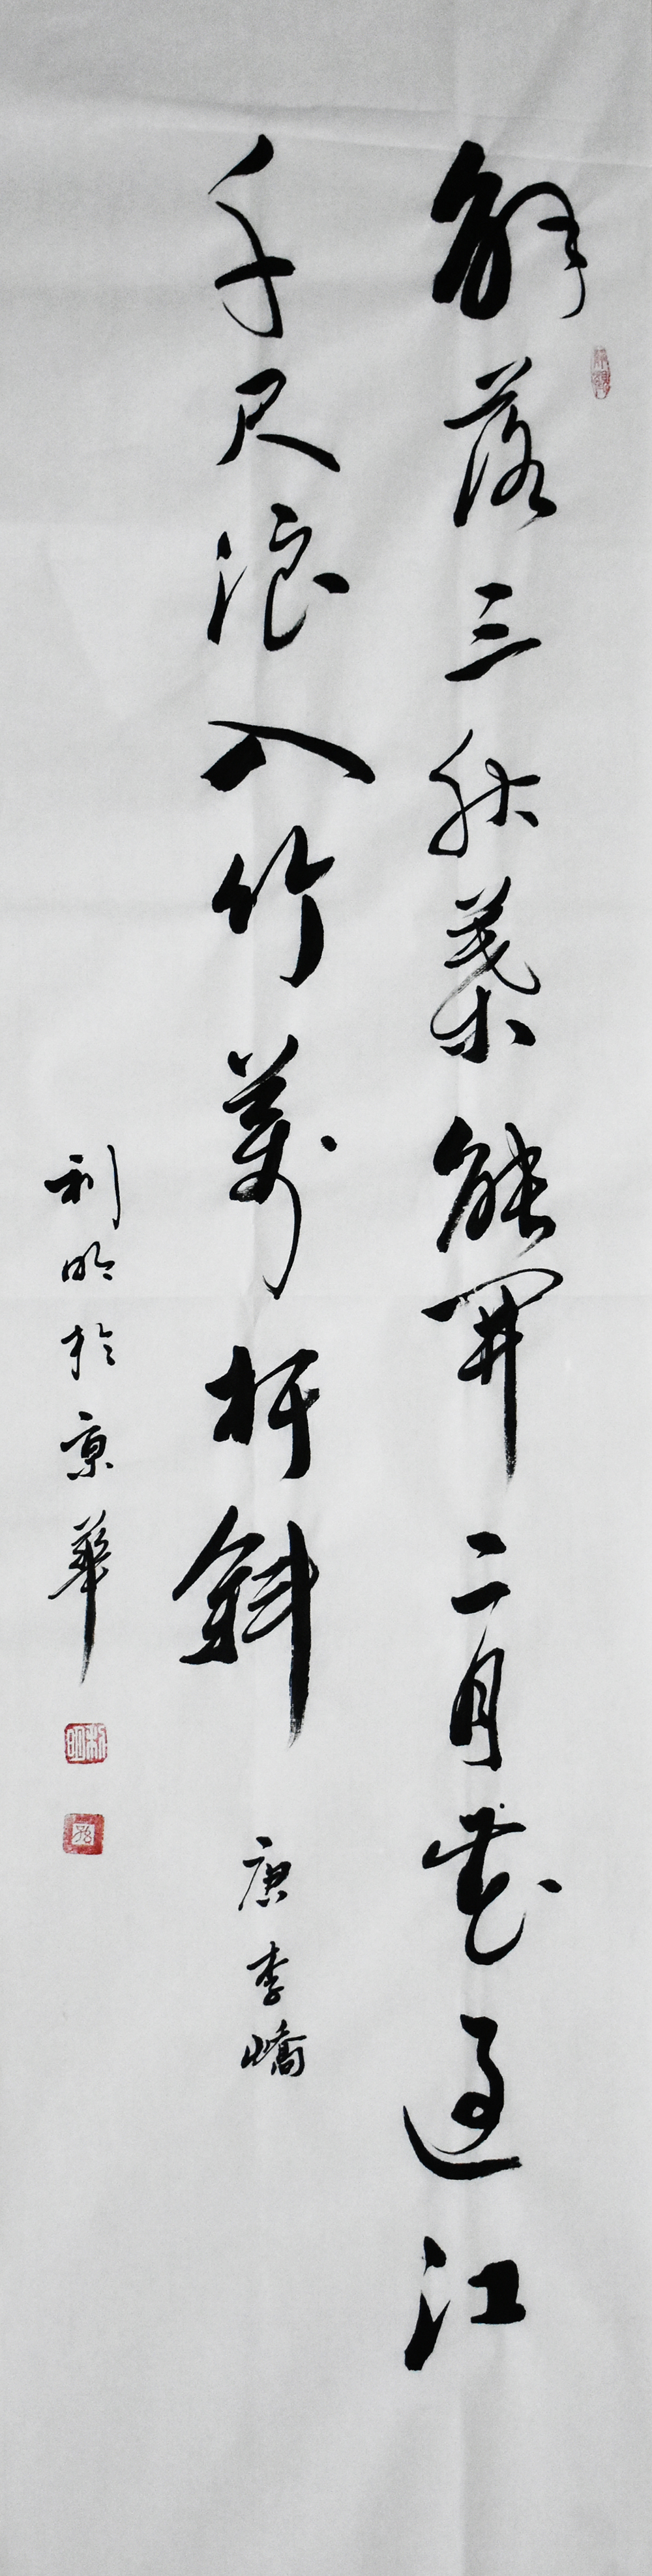 解落三秋葉能開二月花過江
千尺浪入竹萬杆斜 唐李嶠
利明於京華